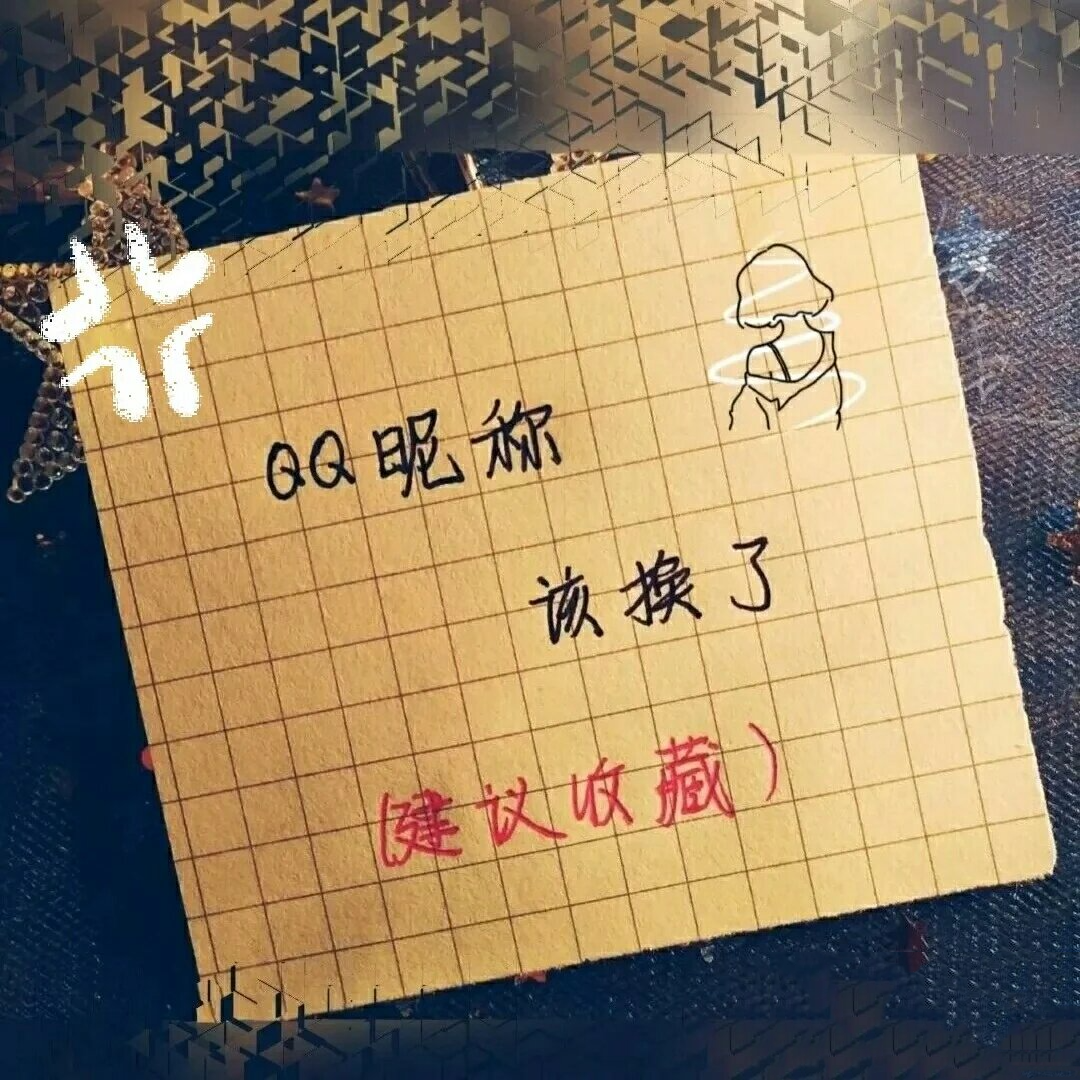 QQ昵称
该换了
(建议收藏)